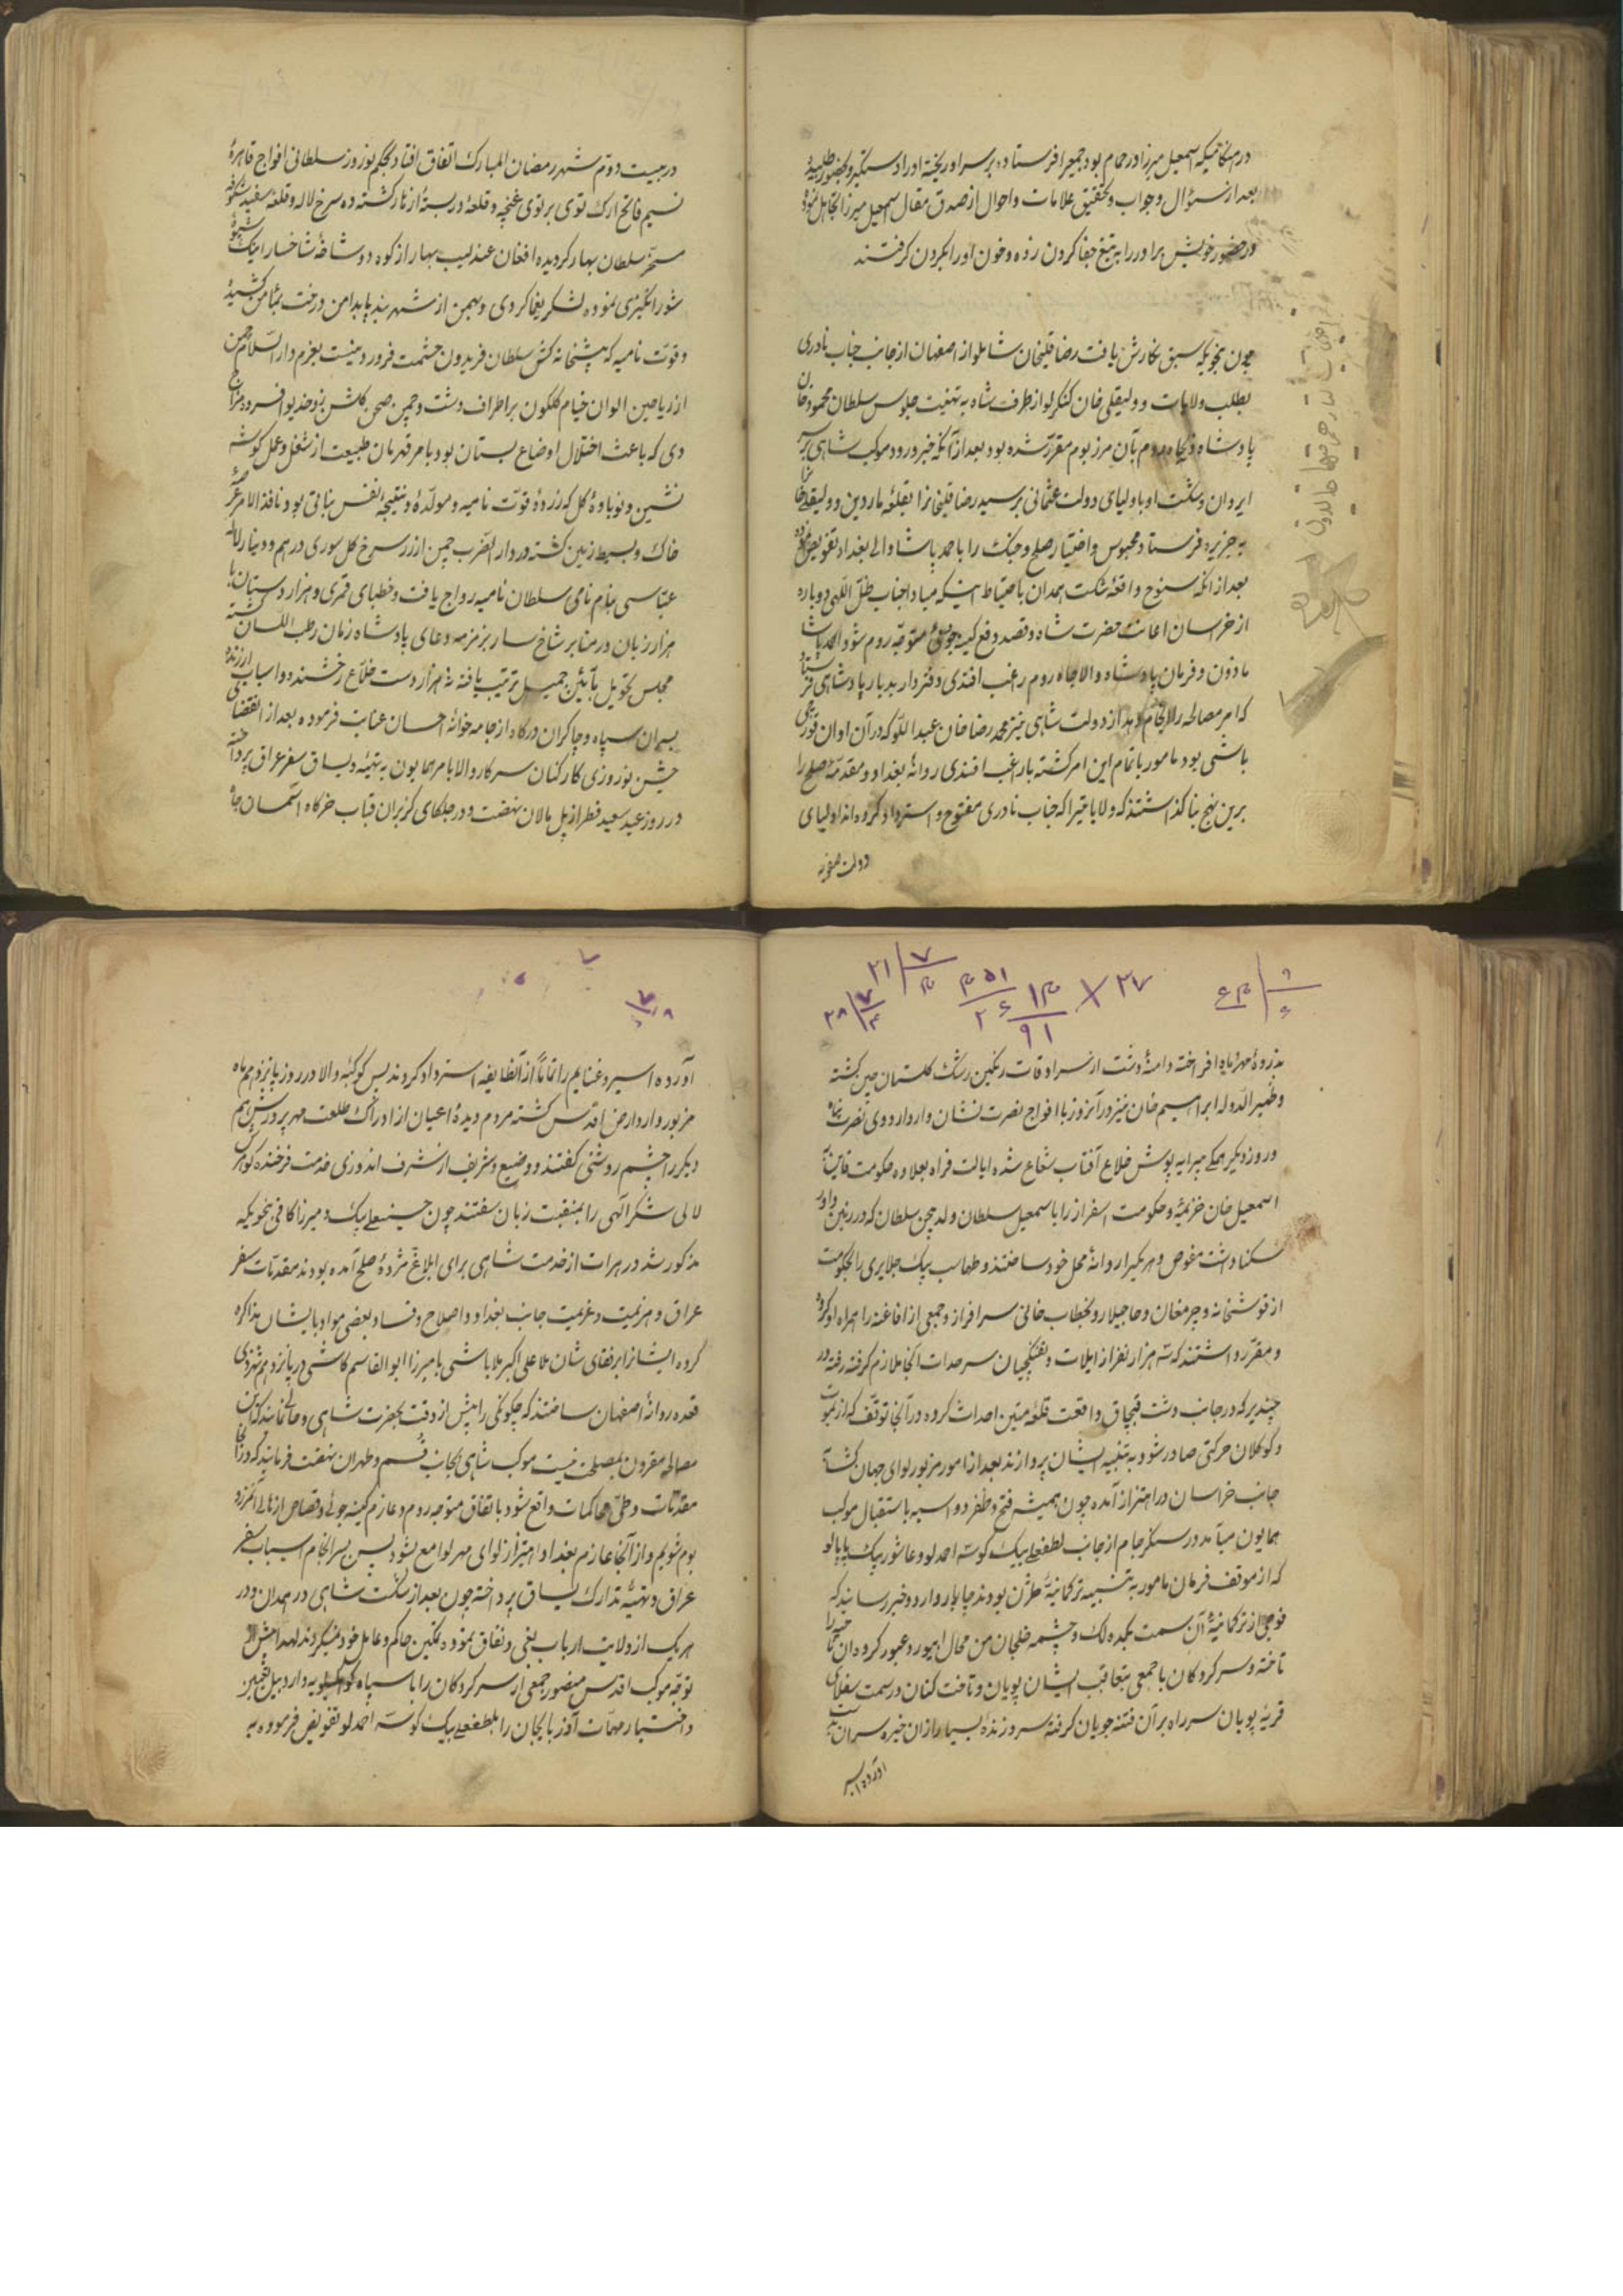 در هنگامیکه اسمعیل میرزا در حمام بود جمعی را فرستاده بر سر او ریخته او را دستگیر و بحضور طلبیده
بعد از سؤال و جواب و تحقیق علامات و احوال از صدق مقال اسمعیل میرزا تجاهل نموده
در حضور خویش برادر را به تیغ جفا گردن زده و خون او را بگردن گرفتند
چون بنحویکه سبق نگارش یافت رضا قلیخان شاملو از اصفهان از جانب جناب نادری
بطلب ولایات و ولیقلی خان کنکرلو از طرف شاه به تهنیت جلوس سلطان محمود خان
پادشاه ذیجاه روم بآن مرز بوم مقرر شده بود بعد از آنکه خبر ورود موکب شاهی بر سر
ایروان و شکست او باولیای دولت عثمانی رسید رضا قلیخان را بقلعهٔ ماردین و ولیقلیخان
به جزیره فرستاده محبوس و اختیار صلح و جنگ را باحمد پاشا والی بغداد تفویض
بعد از آنکه سنوح واقعهٔ شکست همدان باحتیاط اینکه مبادا جناب ظل اللهی دوباره
از خراسان اعانت حضرت شاه و قصد دفع کینه جویی متوجه روم شود احمد پاشا
مأذون و فرمان پادشاه والاجاه روم راغب افندی دفتردار بدربار پادشاهی فرستاد
که امر مصالحه را انجام دهد از دولت شاهی نیز محمد رضا خان عبداللو که در آن اوان قورچی
باشی بود مأمور باتمام این امر گشته با راغب افندی روانهٔ بغداد و مقدمهٔ صلح را
برین نهج بنا گذاشتند که ولایاتیرا که جناب نادری مفتوح و استرداد کرده اند اولیای
دولت
در بیست دوم شهر رمضان المبارک اتفاق افتاد بحکم نوروز سلطانی افواج قاهرهٔ
نسیم فاتح ارک توی بر توی غنچه و قلعهٔ دربستهٔ از نار گشته ده سرخ لاله و قلعهٔ سفید شکوفه
مسخر سلطان بهار گردیده افغان عندلیب بهار از کوه دو شاخهٔ شاخسار
شور انگیزی نموده لشکر یغماگر دی و بهمن از شهر بند پا بدامن درخت بمأمن کشید
و قوت نامیه که پیشخانه کش سلطان فریدون حشمت فروردینست بعزم دارالسلام چمن
از ریاحین الوان خیام گلگون بر اطراف دشت و چمن صحن گلشن زد خدیو افسرده مزاج
دی که باعث اختلال اوضاع بستان بود بامر قهرمان طبیعت از شغل و عمل گوشه
نشین و نوباوهٔ گل که زدهٔ قوت نامیه و مولدهٔ و نتیجهٔ نفس نباتی بود نافذ الامر عرصهٔ
خاک و بسیط زمین گشته در دار الضرب چمن از زر سرخ گل سوری درهم و دینار لاله
عباسی بنام نامی سلطان نامیه رواج یافت و خطبای قمری و هزار دستان با
هزار زبان در منابر شاخسار بزمزمه دعای پادشاه زمان رطب اللسان گشته
مجلس تحویل بآئین جمیل ترتیب یافته هزار دست خلاع رخشنده و اسباب ارزنده
بسران سپاه و چاکران درگاه از جامه خوانهٔ احسان عنایت فرموده بعد از انقضای
جشن نوروزی کارکنان سرکار والا بامر همایون به تهیهٔ یساق سفر عراق پرداخته
در روز عید سعید فطر از پل مالان نهضت و در جلگای کزبران قباب خرگاه آسمان جاه
۴۶ ۹ ۶
۲۷ × ۱۴ ۹۱
۴۵۱ ۲۶
۳۱ ۷ ۴
۲۸ ۷ ۴
بذروهٔ مهر و ماه افراخته دامنهٔ دشت از سرادقات رنگین رشک گلستان چین گشته
و ظهیر الدوله ابراهیم خان نیز در آنروز با افواج نصرت نشان وارد اردوی نصرت پناه
و روز دیگر همگی پیرایه پوش خلاع آفتاب شعاع شده ایالت فراه بعلاوه حکومت قاین بآن
اسمعیل خان خزیمه و حکومت اسفزار را باسمعیل سلطان ولد بیجن سلطان که در زمین داور
سکنا داشت مفوض و هر یکرا روانهٔ محل خود ساختند و طهماسب بیک جلایر را بحکومت
از قوشخانه و جرمغان و حاجیلر و بخطاب خانی سرافراز و جمعی از افاغنه را همراه او کرده
و مقرر داشتند که سه هزار نفر از ایلات و تفنگچیان سرحدات آنجا ملازم گرفته رفته در
چندیر که در جانب دشت قپچاق واقعست قلعهٔ متین احداث کرده در آنجا توقف که از یموت
و کوکلان حرکتی صادر شود به تنبیه ایشان پردازند بعد از امور مزبور لوای جهان گشا
جانب خراسان در اهتزاز آمده چون همیشه فتح و ظفر دو اسبه باستقبال موکب
همایون میآمد در سنگر جام از جانب لطفعلی بیک کوسه احمدلو و عاشور بیک پاپالو
که از موقف فرمان مأمور به تنبیه ترکمانیهٔ طژن بودند چاپار وارد و خبر رسانید که
فوجی از ترکمانیهٔ آن سمت بکده لک و چشمه خلجان من محال ابیورد عبور کرده آن
تاخته و سرکردگان با جمعی بتعاقب ایشان پویان و تاخت کنان در سمت سفلای
قریهٔ پویان سر راه بر آن فتنه جویان گرفته سر و زنده بسیار از آن خیره سران بدست
آورده اسیر
۷ ۵
۷ ۸
آورده اسیر و غنایم را تماماً از آنطایفه استرداد کردند پس کوکبهٔ والا در روز پانزدهم ماه
مزبور وارد ارض اقدس گشته مردم دیدهٔ اعیان از ادراک طلعت مهر پرورش هم
دیگر را چشم روشنی گفتند و وضیع و شریف از شرف اندوزی خدمت فرخنده گوهرش
لالی شکر آلهی را بمنقبت زبان سفتند چون حسینعلی بیک و میرزا کافی بنحویکه
مذکور شد در هرات از خدمت شاهی برای ابلاغ مژدهٔ صلح آمده بودند مقدمات سفر
عراق و هزیمت و عزیمت جانب بغداد و اصلاح و فساد بعضی مواد با ایشان مذاکره
کرده ایشانرا برفقای شان ملا علی اکبر ملاباشی با میرزا ابوالقاسم کاشی در پانزدهم شهر ذی
قعده روانهٔ اصفهان ساختند که چگونگی را پیش از وقت بحضرت شاهی و حالی نمایند که این
مصالحه مقرون بمصلحت نیست موکب شاهی بجانب قم و طهران نهضت فرمایند که در آنجا
مقدمات و طی محاکمات واقع شود باتفاق متوجه روم و عازم کینه جوئی و قصاص از اهالی آنمرز و
بوم شویم و از آنجا عازم بغداد اهتزاز لوای مهر لوامع شود پس بسرانجام اسباب سفر
عراق و تهیهٔ تدارک یساق پرداخته چون بعد از شکست شاهی در همدان و در
هر یک از ولایت ارباب بغی و نفاق نموده تمکین حاکم و عامل خود نمیکردند لهذا پیش از
توجه موکب اقدس منصور جمعی از سرکردگان را با سپاه کوهکیلویه و اردبیل تعیین
و اختیار مهمات آذربایجان را بلطفعلی بیک کوسه احمدلو تفویض فرموده به